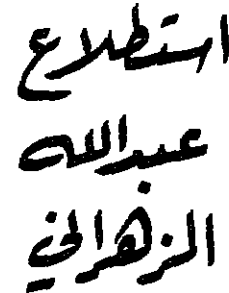 استطلاع
عبدالله
الزهراني